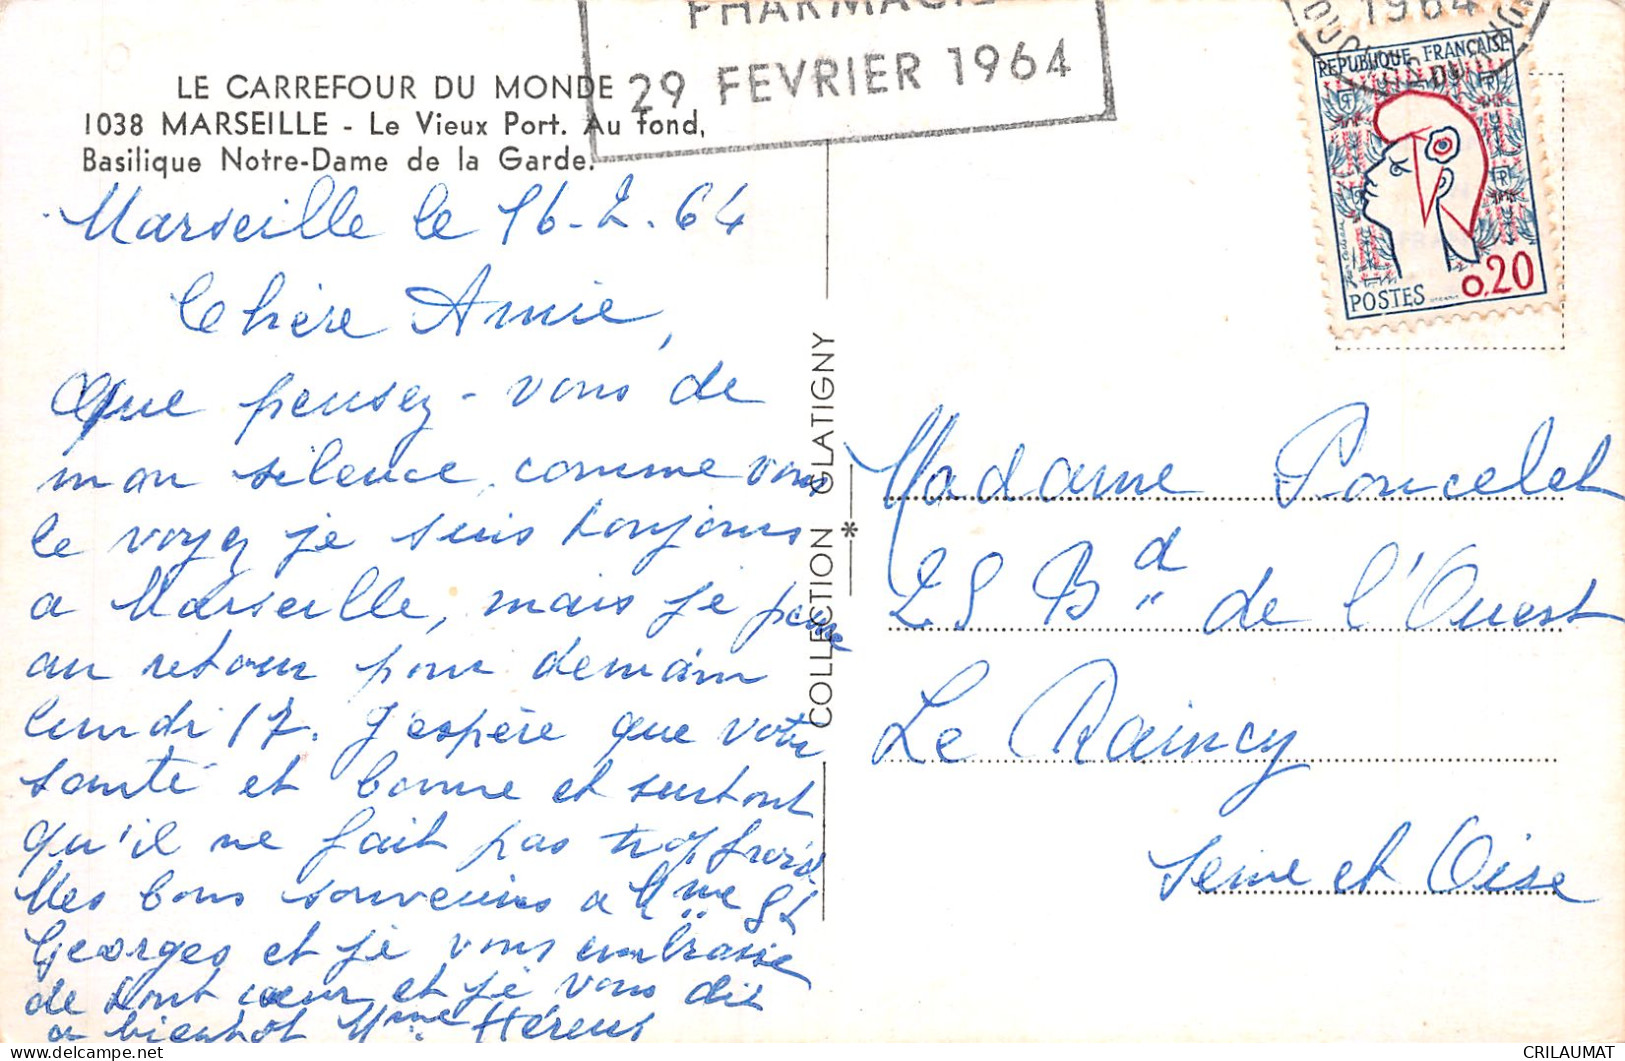 PHARMACIE
29 FEVRIER 1964
1964
LE CARREFOUR DU MONDE
1038 MARSEILLE - Le Vieux Port. Au fond,
Basilique Notre-Dame de la Garde.
Marseille le 16-2-64
Chère Amie,
Que pensez-vous de
mon silence, comme vous
le voyez je suis toujours
a Marseille, mais je pense
au retour pour demain
lundi 17. J'espère que votre
santé et bonne et surtout
qu'il ne fait pas trop froid.
Mes bons souvenirs a Mme St
Georges et je vous embrasse
de tout cœur et je vous dit
a bientot Mme
COLLECTION GLATIGNY
REPUBLIQUE FRANÇAISE
POSTES 0,20
Madame Poncelet
25 Bd de l'Ouest
Le Raincy
Seine et Oise
CRILAUMAT